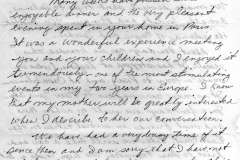 Many weeks have
enjoyable dinner and the very pleasant
evening spent in your home in Paris.
It was a wonderful experience meeting
you and your children and I enjoyed it
tremendously, one of the most stimulating
events in my two years in Europe. I know
that my mother will be greatly interested
when I describe to her our conversation.
We have had a very busy time of it
since then, and I am sorry that I have not